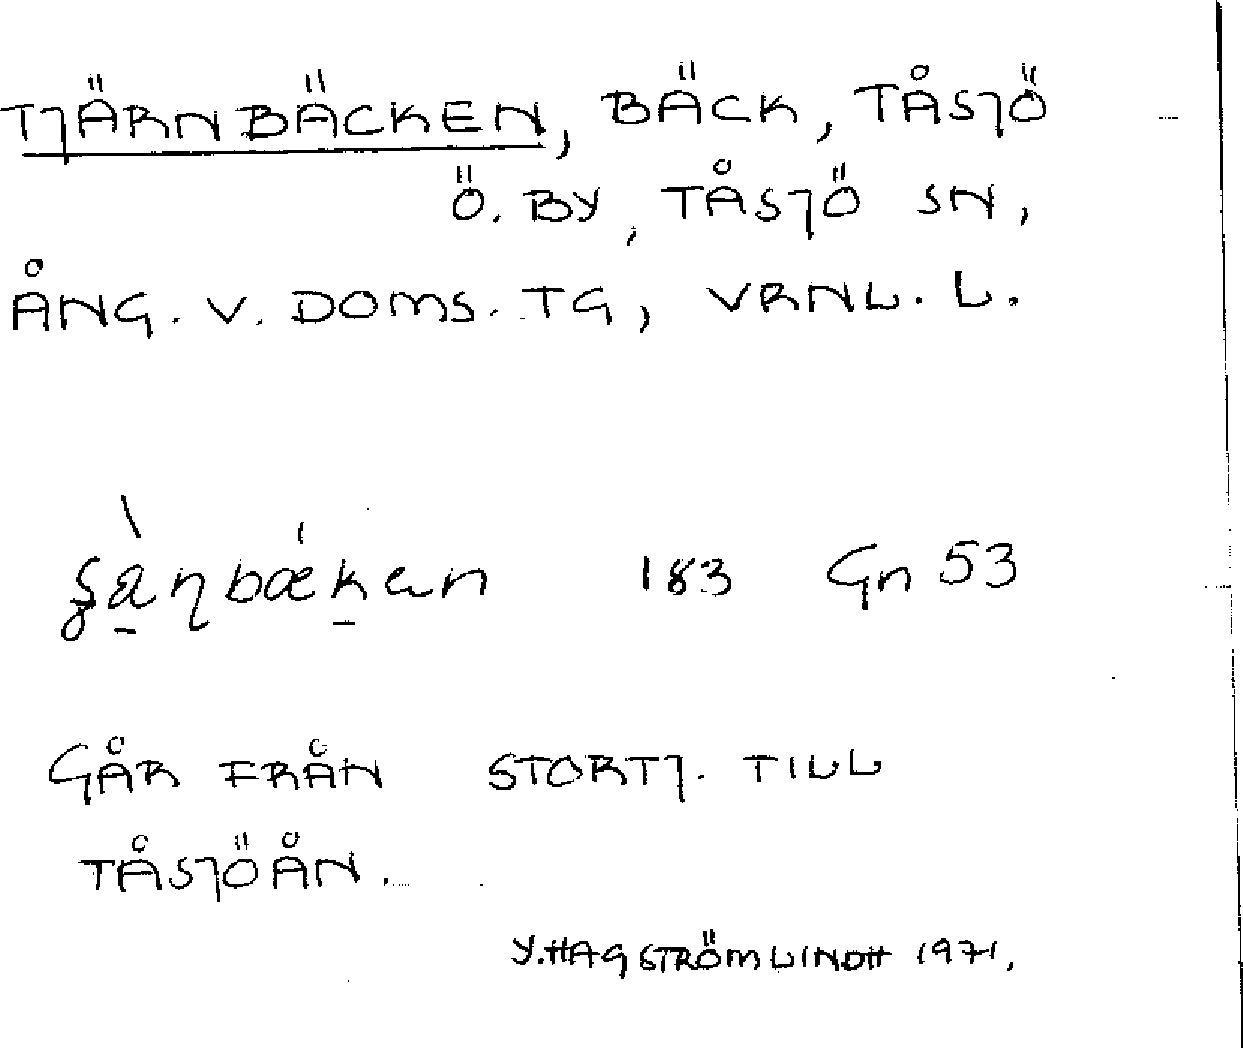 TJÄRNBÄCKEN, BÄCK, TÅSJÖ
Ö. BY, TÅSJÖ SN,
ÅNG. V. DOMS. TG, VRNL. L.
183 Gn 53
GÅR FRÅN STORTJ. TILL
TÅSJÖÅN.
Y. HAGSTRÖM LINDH 1971,